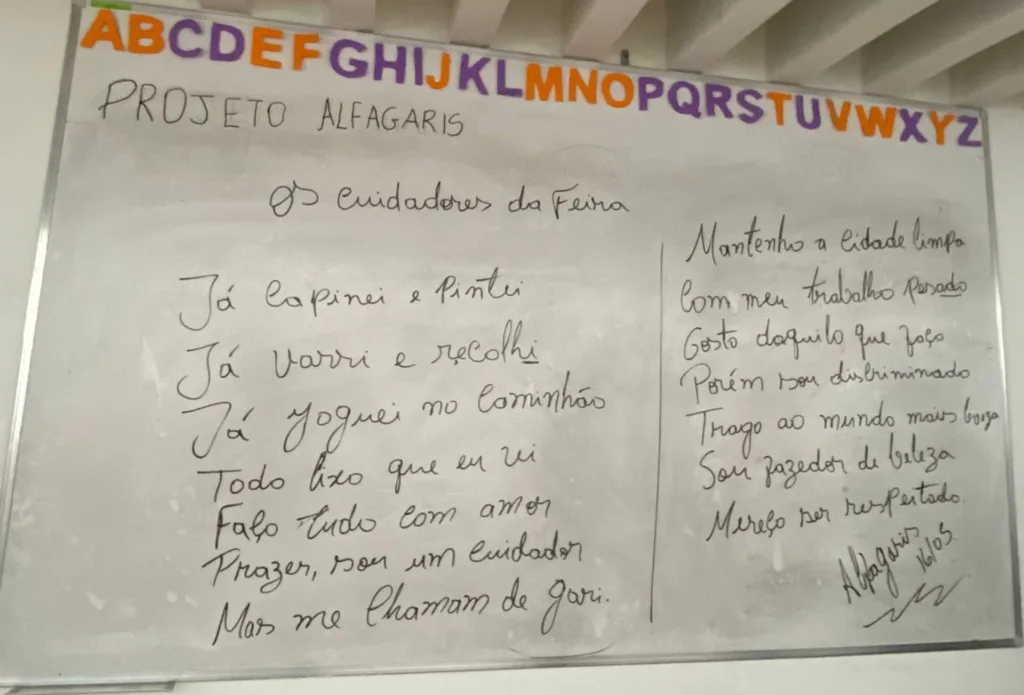 ABCDEFGHIJKLMNOPQRSTUVWXYZ
PROJETO ALFAGARIS
Os Cuidadores da Feira
Já Capinei e Pintei
Já varri e recolhi
Já joguei no Caminhão
Todo lixo que eu vi
Faço tudo com amor
Prazer, sou um Cuidador
Mas me Chamam de gari.
Mantenho a Cidade limpa
Com meu trabalho pesado
Gosto daquilo que faço
Porém sou discriminado
Trago ao mundo mais
Sou fazedor de beleza
Mereço ser respeitado.
Alfagaris
16/05